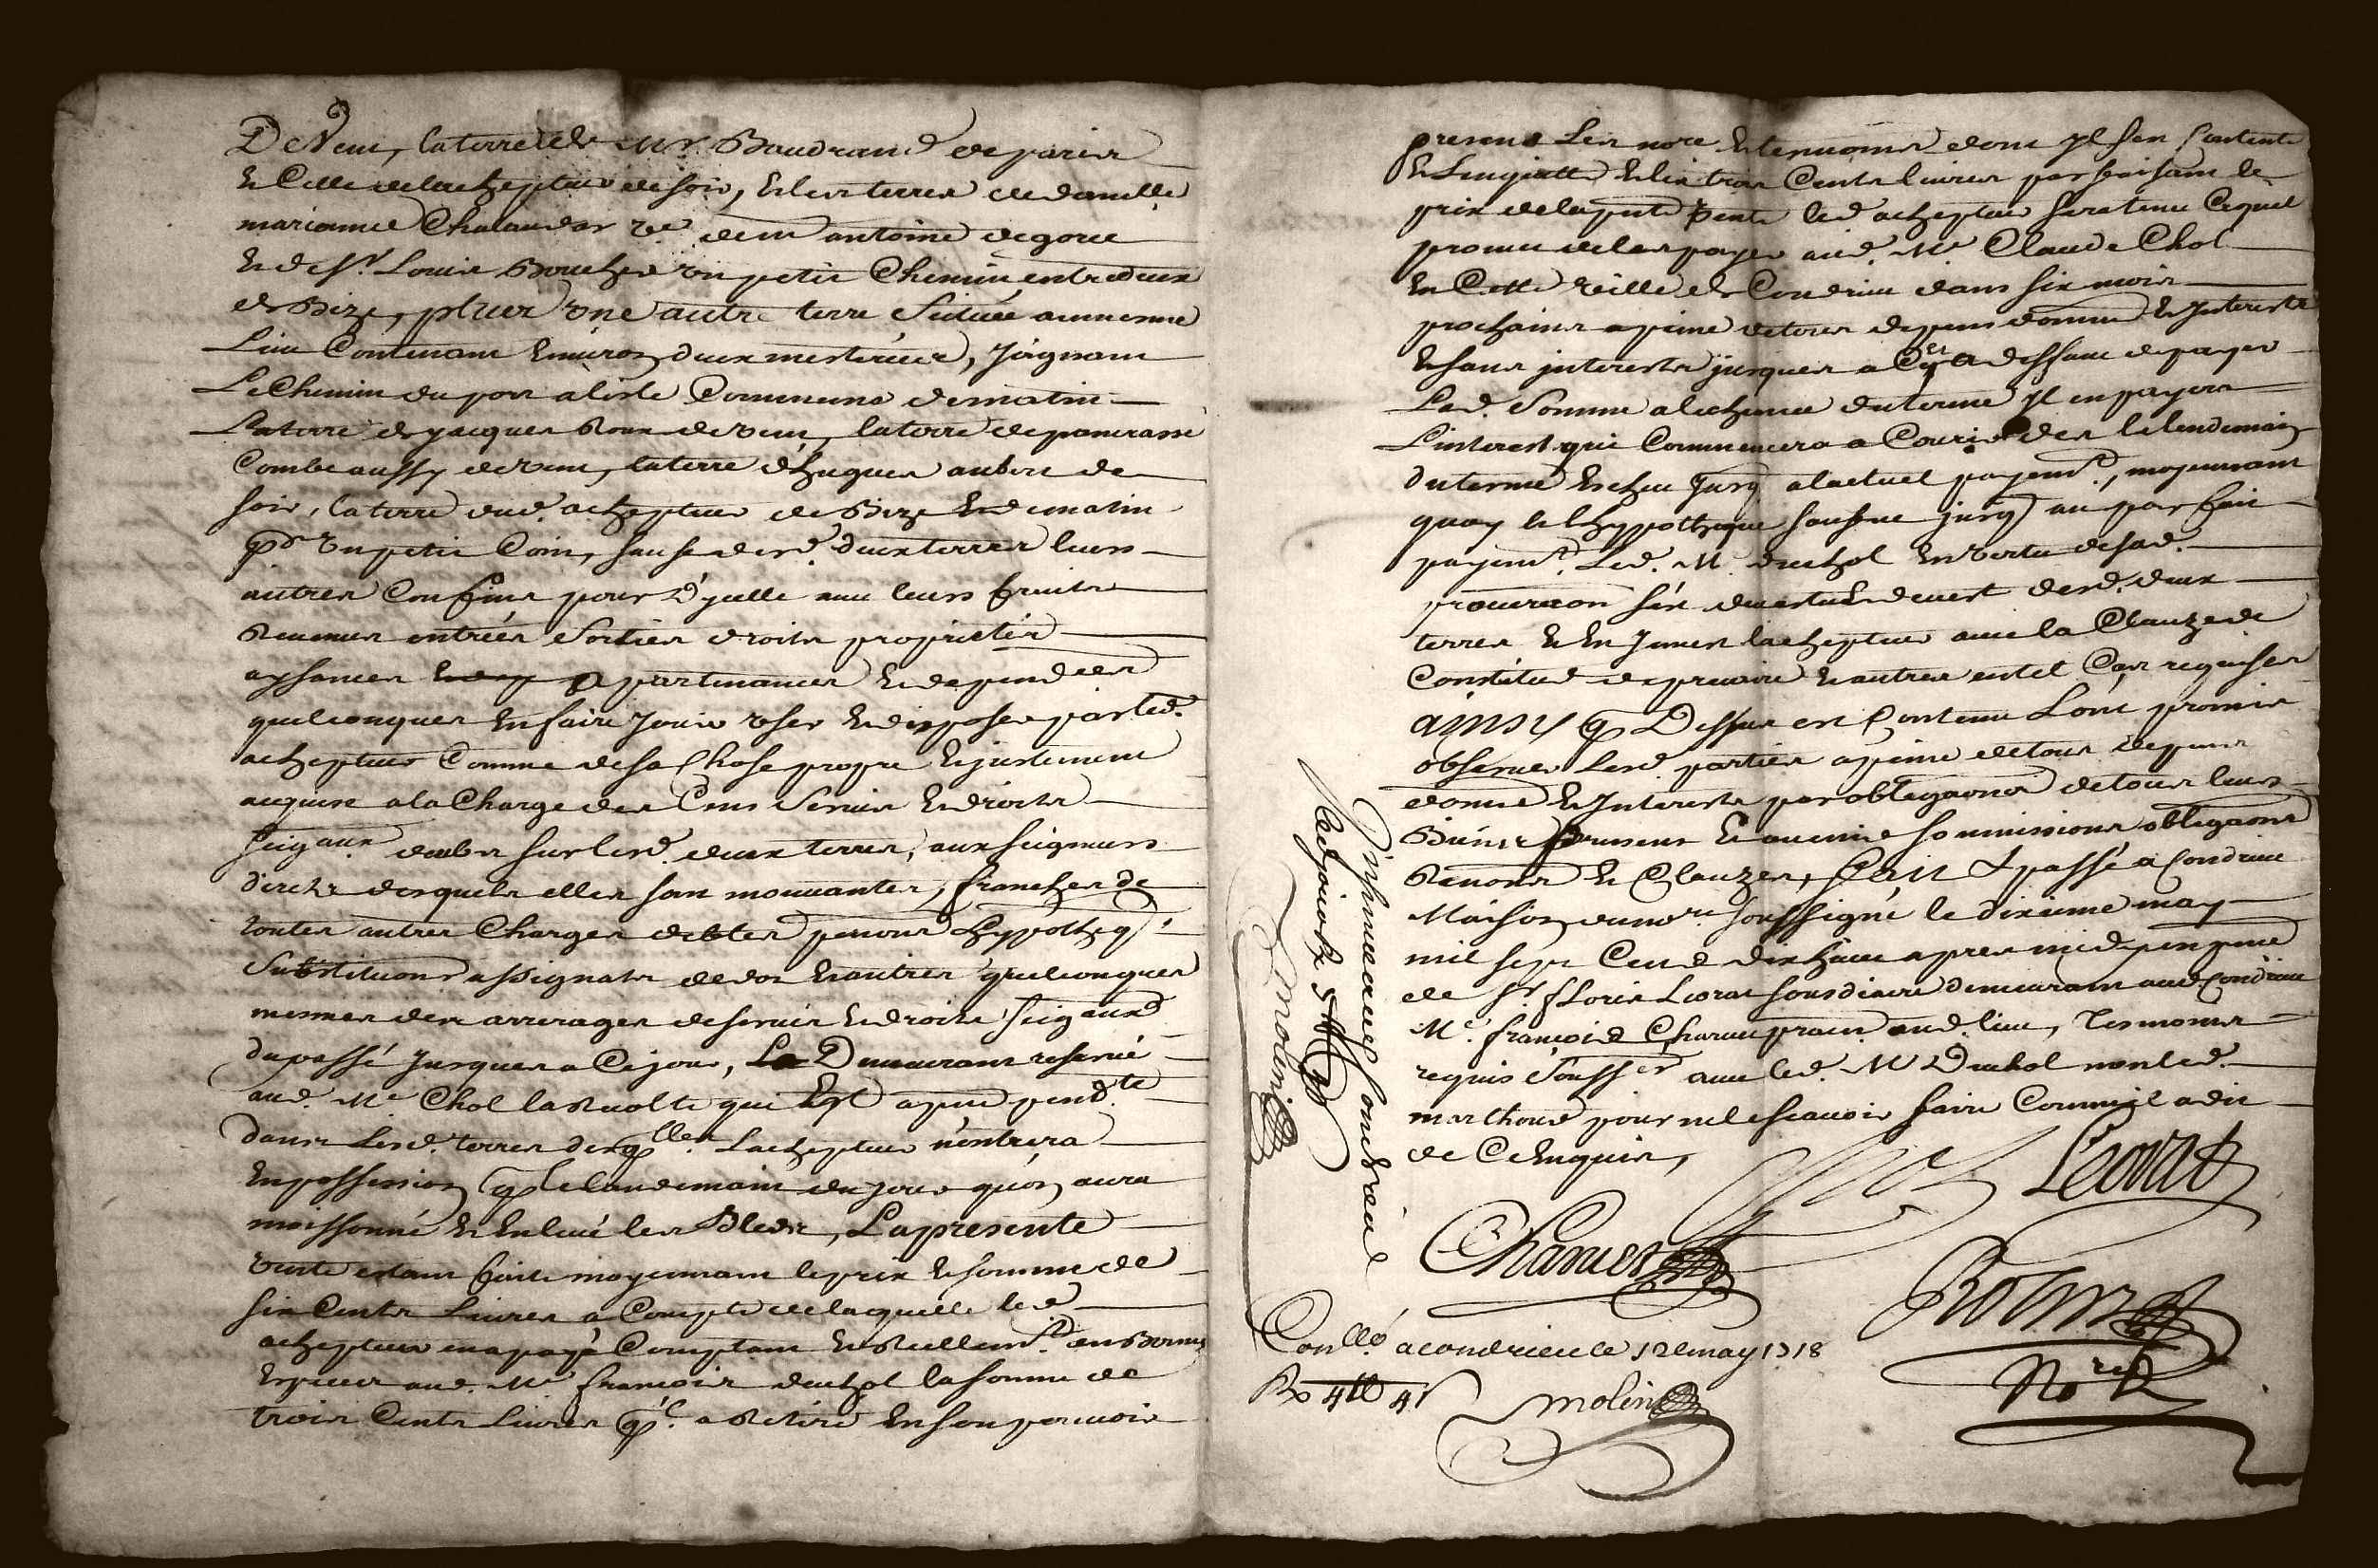 De Vent, la terre de Mr Baudrand de paris
et Celle de lachepteur de soir, et les terres de damlle
marianne Chalandar ve de antoine degoue
et de sr Louis Boucher un petit Chemin entredeux
de Bize, plus une autre terre Scituée au mesme
Lieu Contenant Environ deux mesterées, Joignant
Le Chemin du port a l'isle Commune de matin
La terre de jacques Roux de vent, la terre de pancrasse
Combe aussy de vent, la terre d'hugues aubert de
soir, la terre dud. achepteur de Bize Et de matin
pr un petit Coin, sauf desd. deux terres leurs
autres Confins pour d'ycelle avec leurs fruits
Revenus entrées Sorties droits proprietés
aysances apartenances et dependces
quelconques En faire Jouir user Et disposer par led.
achepteur Comme de sa Chose propre Et justement
acquise a la Charge des Cens Servis Et droits
seigaux deubs sur lesd. deux terres, aux seigneurs
directs desquels elles sont mouvantes, franches de
toutes autres Charges debtes pensions hyppotheq
Substituons assignats de dot Et autres quelconques
mesmes des arrerages de servis Et droits seigaux
du passé Jusques a Ce jour, Demeurant reservé
aud. Me Chol la Recolte qui Est a pend.te
dans Lesd. terres desqlles Lachepteur n'entrera
En possession qe le landemain du jour quon aura
moissonné Et Enlevé les Bleds, La presente
vente estant faite moyennant le prix Et somme de
six Cents Livres a Compte de laquelle led.
achepteur en a payé Comptant Et Reellemt. en Bonnes
Especes aud. Me francois duchol la somme de
trois Cents Livres qe. a Retiré En son pouvoir
presens Les nore Et tesmoins dont yl s'en Contente
Et L'en quitte Et les trois Cents livres parfaisant le
prix de la pnte vente led. achepteur sera tenu Et
promet de les payer aud. Me Claude Chol
En Cette ville de Condrieu dans six mois
prochains a peine de tous depens domms Et Interests
Et sans interests jusques a Et a deffaut de payer
Lad. Somme a lecheance du terme yl en payera
L'interest qui Commencera a Courir des le lendemain
du terme Escheu jusq a lactuel payemt., moyennant
quoy et l'hyppotheque sauve jusq au parfait
payemt. Led. M. duchol En vertu de sad.
procuraon s'est devestu desd. deux
terres Et En Invest lachepteur avec la Clauze de
Constitut de precaire Et autres en tel Cas requises
ainsy qe Dessus est Contenu L'ont promis
observer Lesd. parties a peine de tous depens
domms Et Interests par obligaons de tous leurs
Biens presens Et avenir soumissions obligaons
Renons Et Clauzes, fait & passé a Condrieu
Maison dud nre soussigné le dixieme may
mil sept Cent dix huit apres midy en pnce
de Sr floris Liorat sousdiacre demeurant aud Condrieu
Me. françois Charvet praten aud. lieu, tesmoins
requis Soussés avec led. Me Duchol non led.
marthoud pour ne le scavoir faire Comme il a dit
de Ce Enquis,
Liorat
Charvet
Conllé a condrieu ce 12 may 1718
R 4ll 4s
molin
Nore R
L'insinuaon Cont
molin